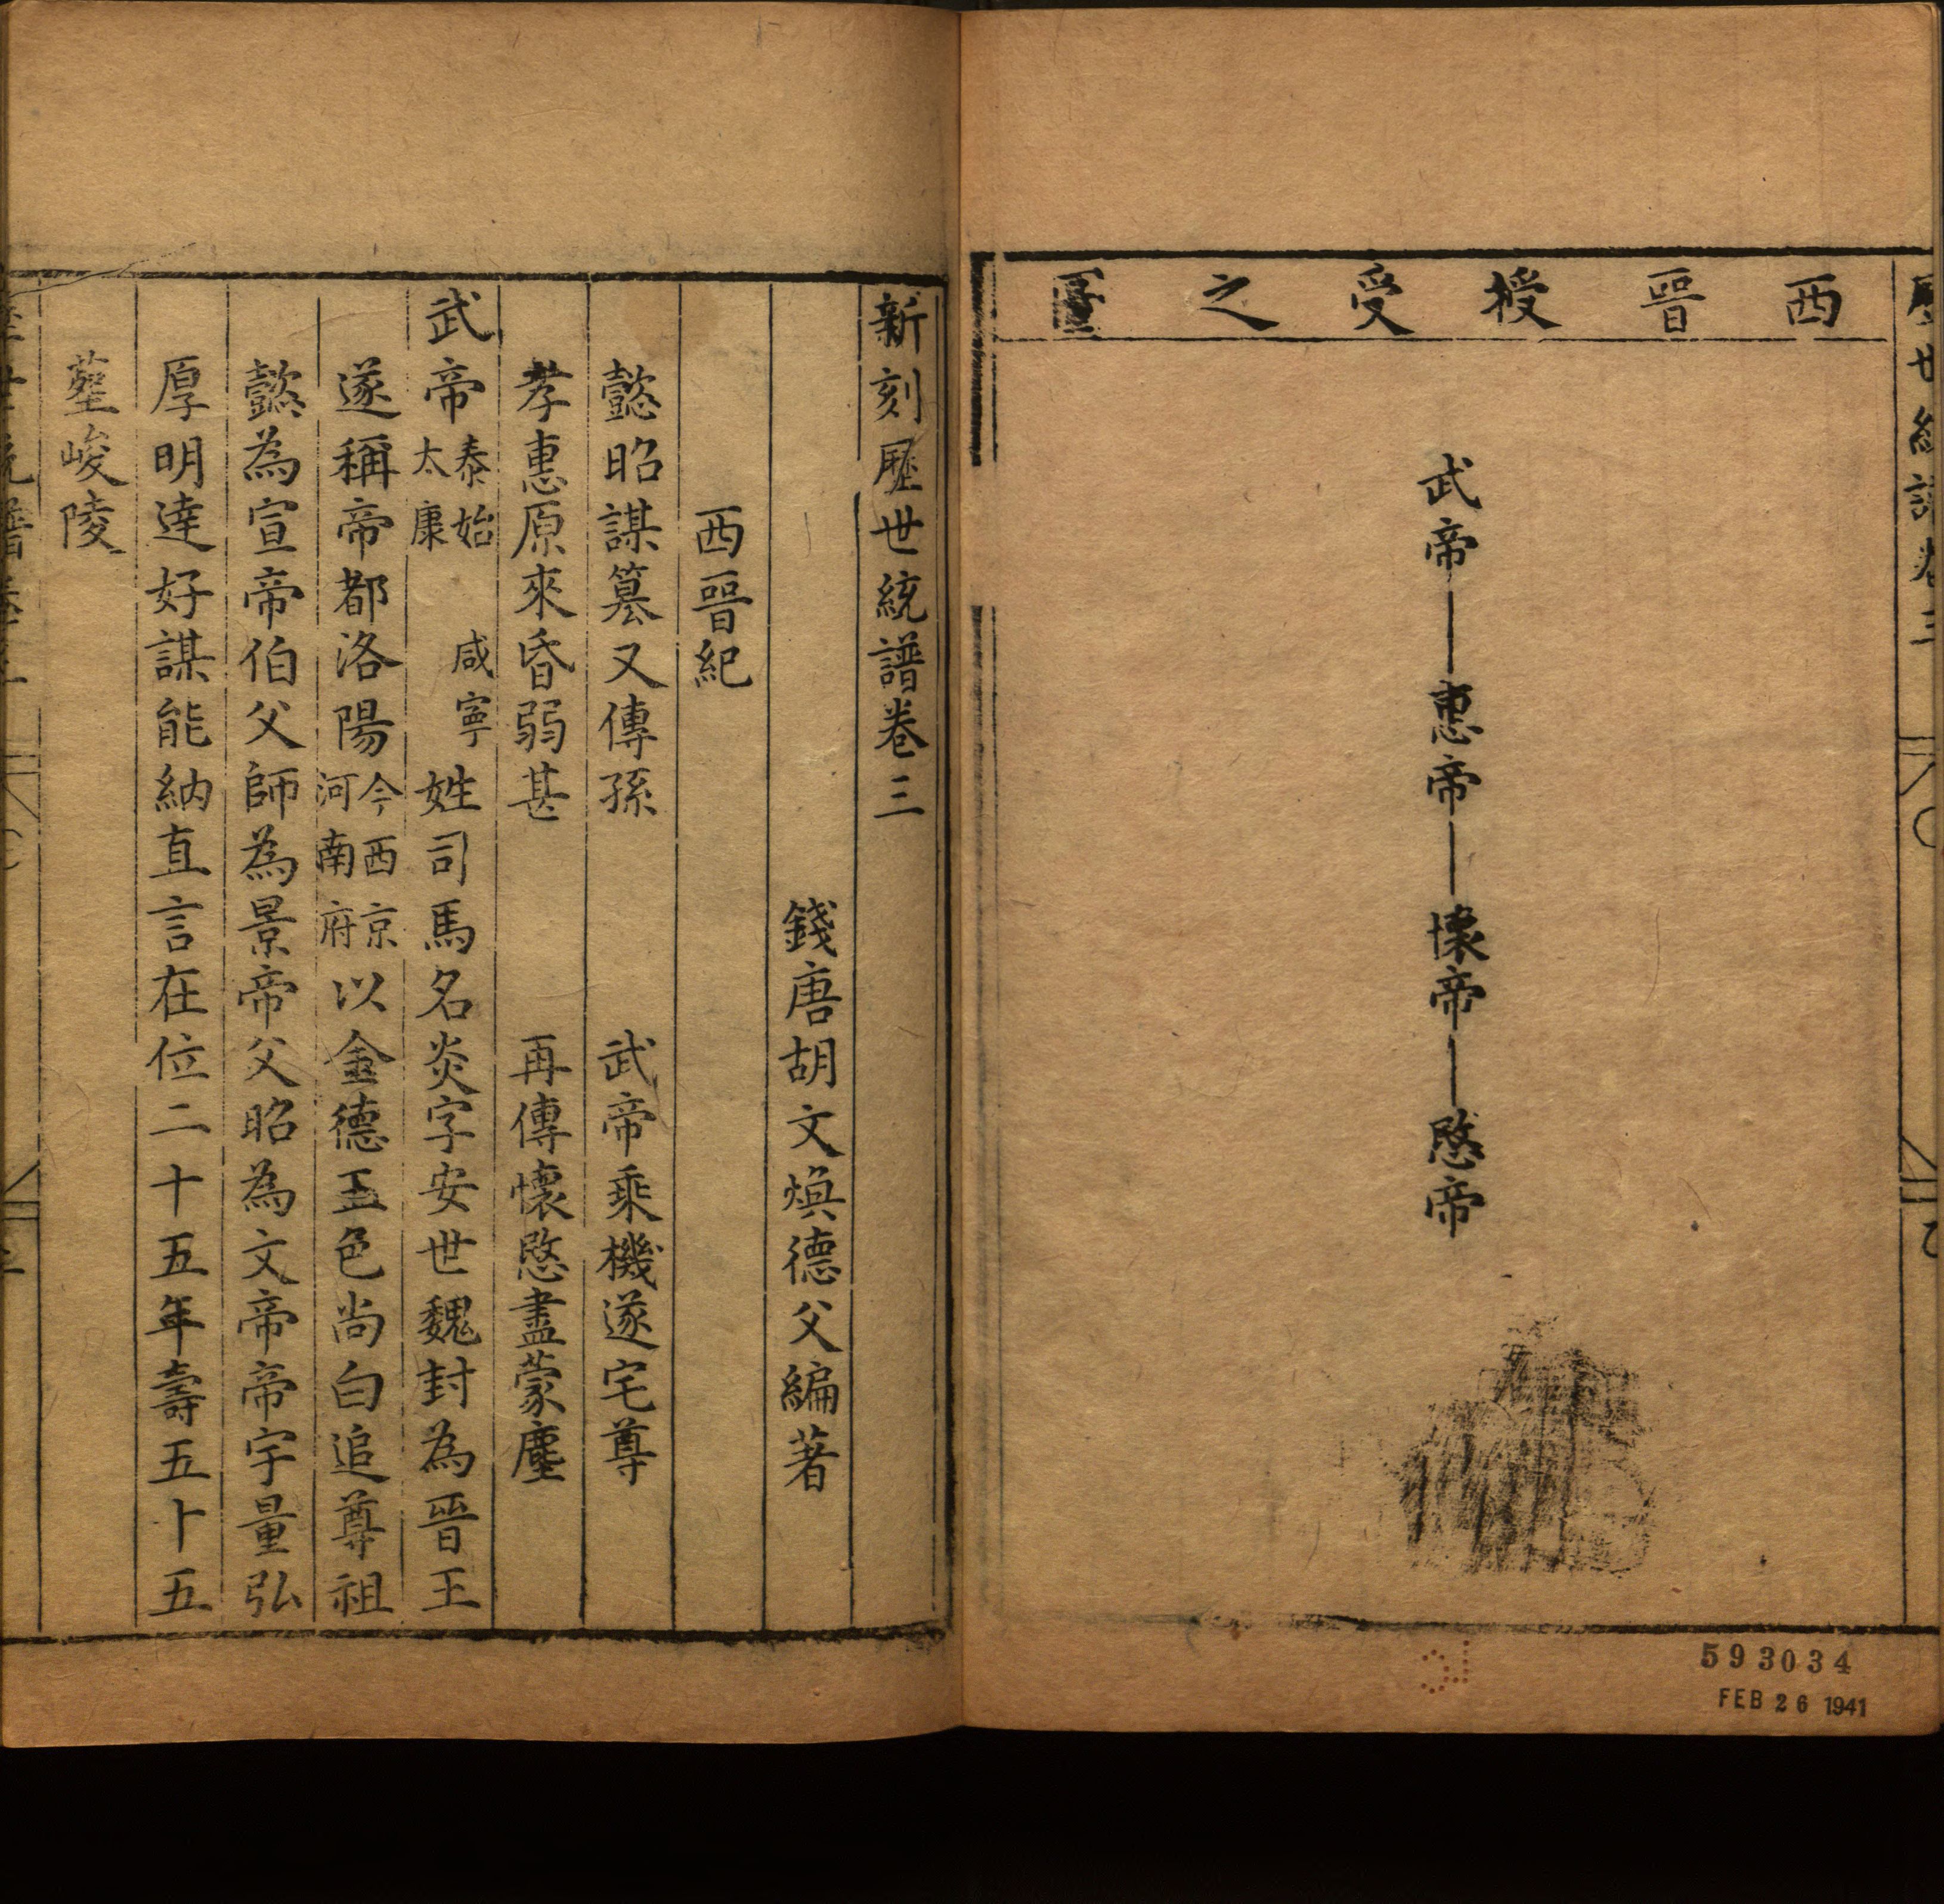 西晉授受之圖
武帝—惠帝—懷帝—愍帝
593034
FEB 26 1941
新刻歷世統譜卷三
錢唐胡文煥德父編著
西晉紀
懿昭謀簒又傳孫　武帝乘機遂宅尊
孝惠原來昏弱甚　再傳懷愍盡蒙塵
武帝泰始太康咸寧姓司馬名炎字安世魏封為晉王
遂稱帝都洛陽今西京河南府以金德王色尚白追尊祖
懿為宣帝伯父師為景帝父昭為文帝帝宇量弘
厚明達好謀能納直言在位二十五年壽五十五
塟峻陵